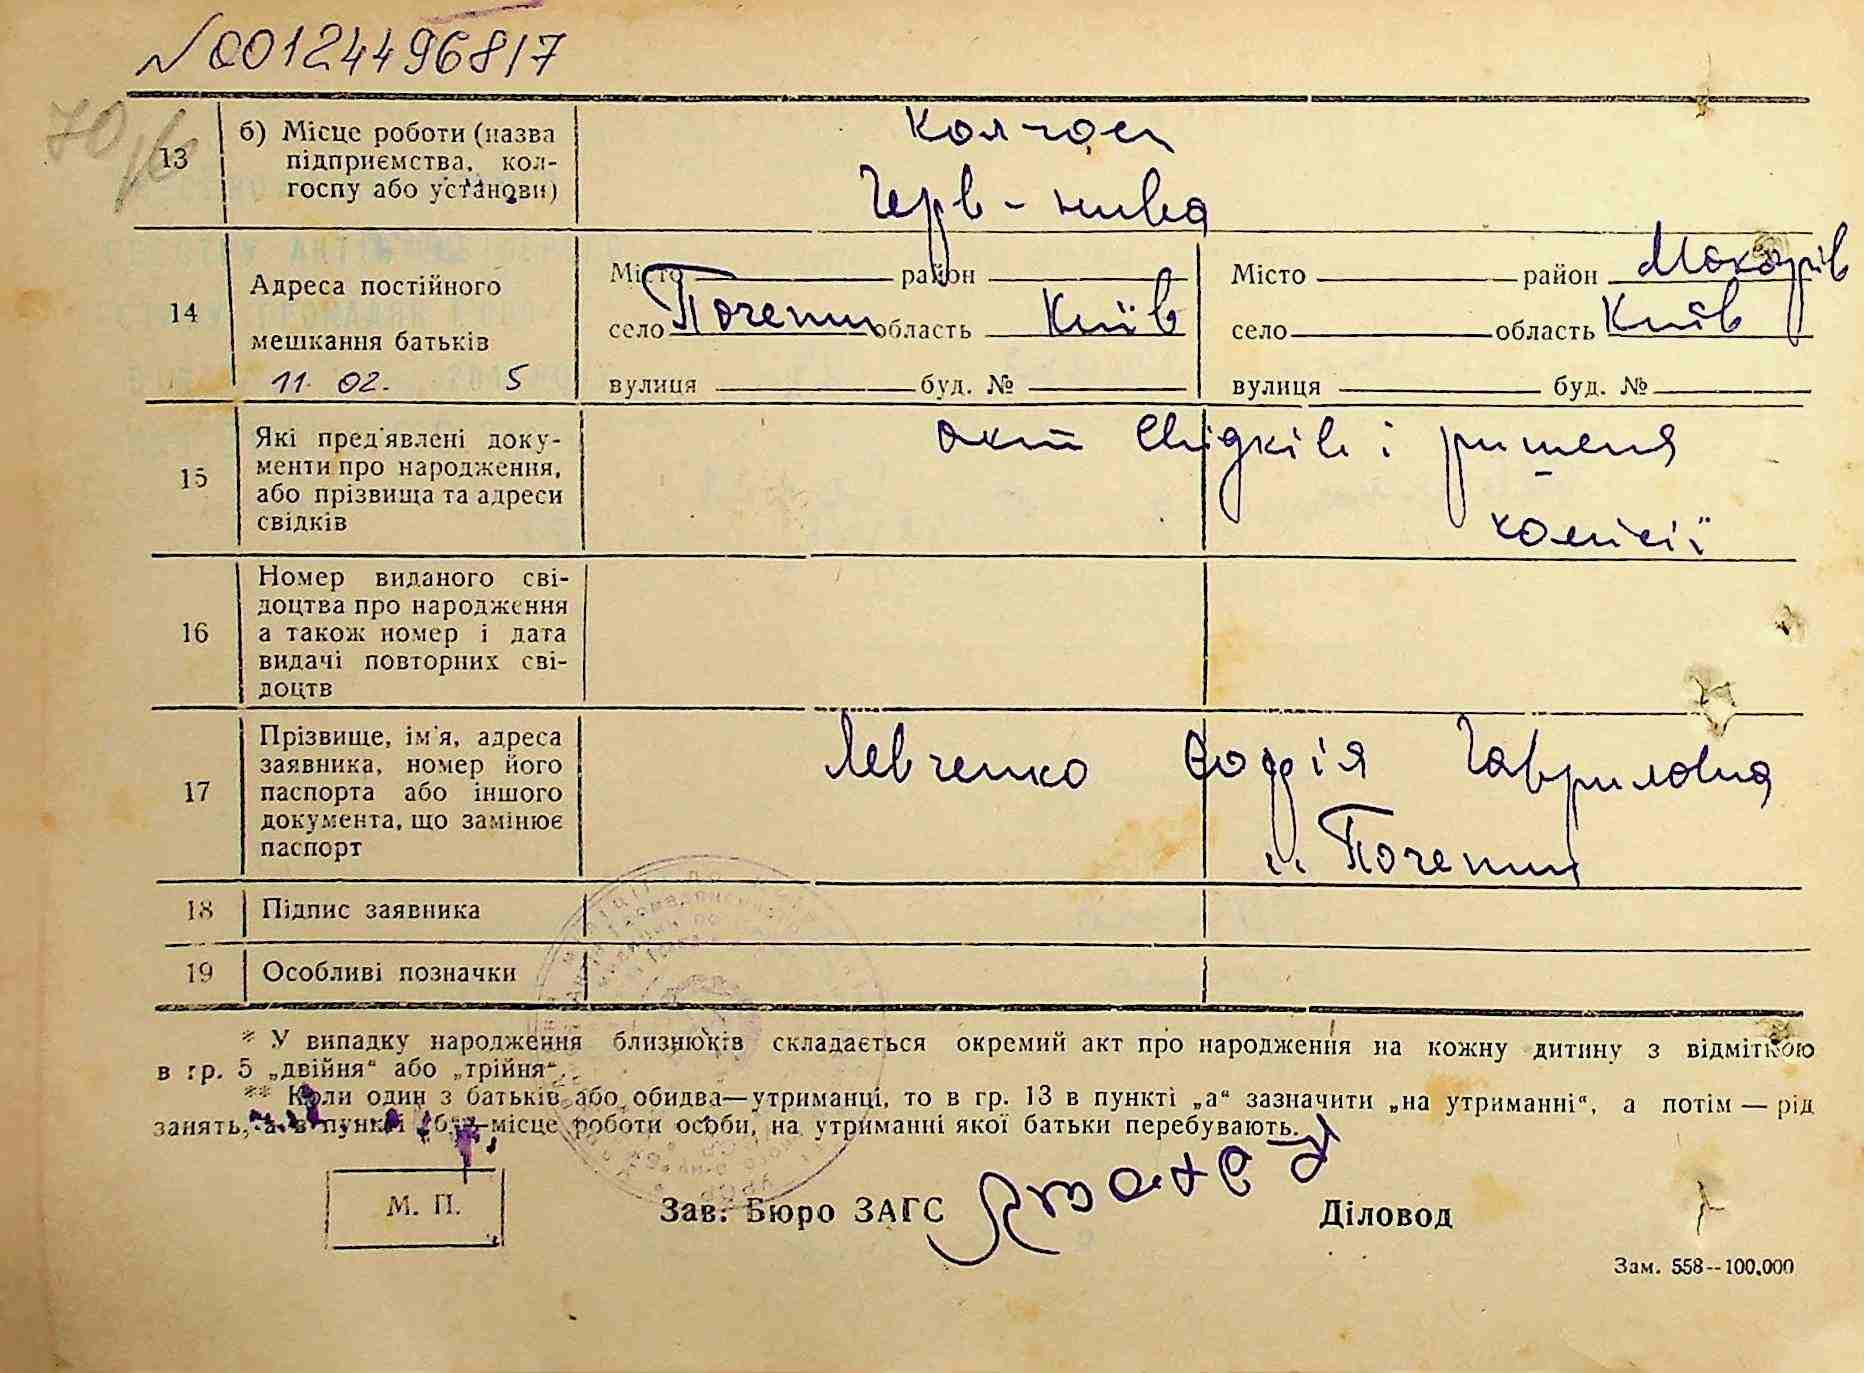 №00124496817
70
13
б) Місце роботи (назва
підприємства, кол-
госпу або установи)
Колгосп
Черв-нива
14
Адреса постійного
мешкання батьків
11. 02. 5
Місто район
село Почепин область Київ
вулиця буд. №
Місто район Макарів
село область Київ
вулиця буд. №
15
Які пред'явлені доку-
менти про народження,
або прізвища та адреси
свідків
акт свідків і ришеня
комісії
16
Номер виданого сві-
доцтва про народження
а також номер і дата
видачі повторних сві-
доцтв
17
Прізвище, ім'я, адреса
заявника, номер його
паспорта або іншого
документа, що замінює
паспорт
Левченко Софія Гавриловна
Почепин
18
Підпис заявника
19
Особливі позначки
* У випадку народження близнюків складається окремий акт про народження на кожну дитину з відміткою
в гр. 5 „двійня“ або „трійня“.
** Коли один з батьків або обидва—утриманці, то в гр. 13 в пункті „а“ зазначити „на утриманні“, а потім — рід
занять, а в пункті „б“—місце роботи особи, на утриманні якої батьки перебувають.
М. П.
Зав. Бюро ЗАГС
Діловод
Зам. 558--100.000